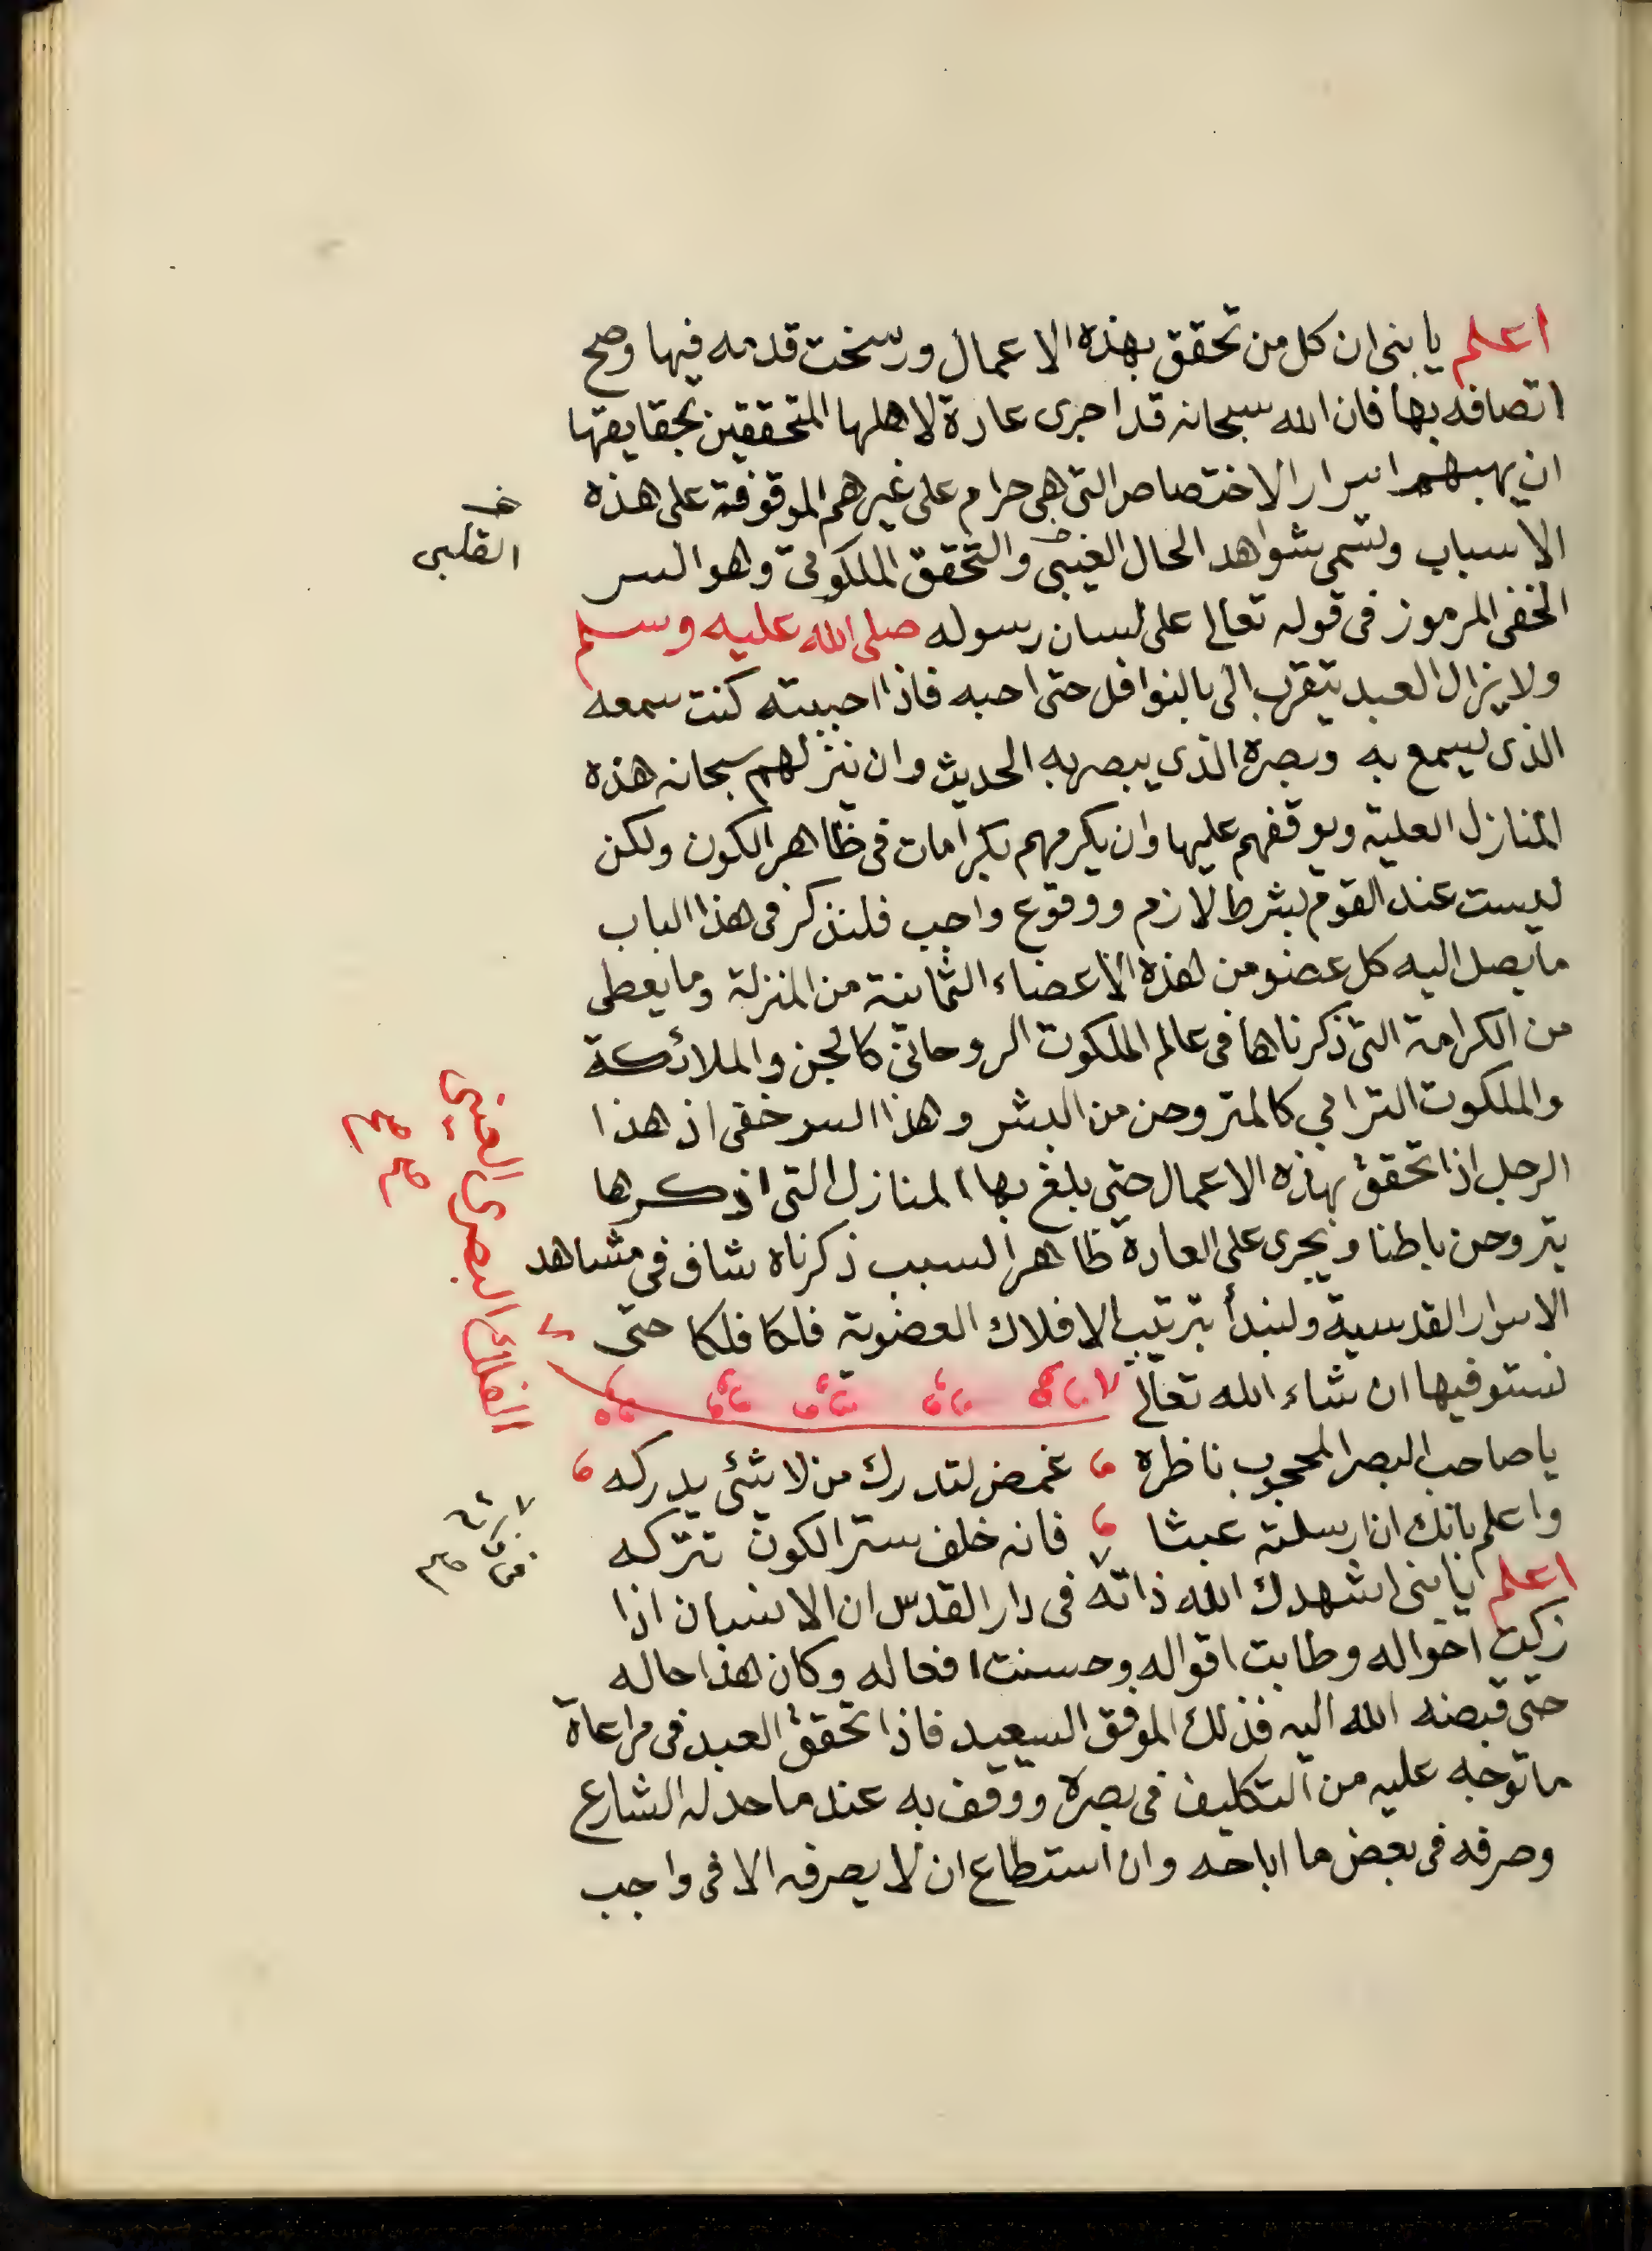 اعلم يا بنى ان كل من تحقق بهذه الاعمال ورسخت قدمه فيها وصح
اتصافه بها فان الله سبحانه قد اجرى عادة لاهلها المتحققين بحقايقها
ان يهبهم اسرار الاختصاص التى هى حرام على غيرهم الموقوفة على هذه
الاسباب وتسمى شواهد الحال الغيبى والتحقق الملكوتى وهو السر
خـ
القلبى
الخفى المرموز فى قوله تعالى على لسان رسوله صلى الله عليه وسلم
ولا يزال العبد يتقرب الى بالنوافل حتى احبه فاذا احببته كنت سمعه
الذى يسمع به وبصره الذى يبصر به الحديث وان ينزلهم سبحانه هذه
المنازل العلية ويوقفهم عليها وان يكرمهم بكرامات فى ظاهر الكون ولكن
ليست عند القوم بشرط لازم ووقوع واجب فلنذكر فى هذا الباب
ما يصل اليه كل عضو من هذه الاعضاء الثمانية من المنزلة وما يعطى
من الكرامة التى ذكرناها فى عالم الملكوت الروحانى كالجن والملائكة
والملكوت الترابى كالمتروحن من البشر وهذا السر خفى اذ هذا
الرجل اذا تحقق بهذه الاعمال حتى بلغ بها المنازل التى اذكرها
يتروحن باطنا ويجرى على العادة ظاهرا لسبب ذكرناه شاف فى مشاهد
الاسرار القدسية ولنبدأ بترتيب الافلاك العضوية فلكا فلكا حتى
نستوفيها ان شاء الله تعالى
الفلك البصرى العينى
صح صح
يا صاحب البصر المحجوب ناظره غمض لتدرك من لا شئ يدركه
واعلم بانك ان ارسلته عبثا فانه خلف ستر الكون تتركه
اعلم يا بنى اشهدك الله ذاته فى دار القدس ان الانسان اذا
زكت احواله وطابت اقواله وحسنت افعاله وكان هذا حاله
حتى قبضه الله اليه فذلك الموفق السعيد فاذا تحقق العبد فى مراعاة
ما توجه عليه من التكليف فى بصره ووقف به عند ما حد له الشارع
وصرفه فى بعض ما اباحه وان استطاع ان لا يصرفه الا فى واجب